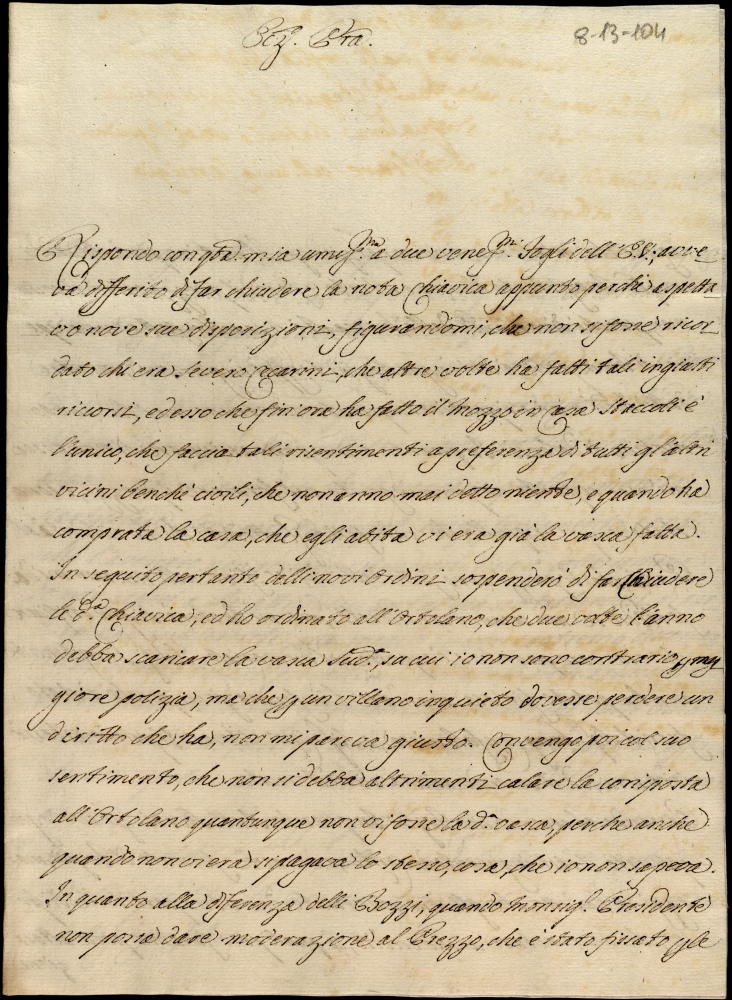 8-13-104
Ecc.ª Pra.
Rispondo con q̃ta mia umiss.ma a due vene.mi Fogli dell'E.V.; aove-
va differito di far chiudere la nota Chiavica appunto perchè aspetta-
vo nove sue disposizioni, figurandomi, che non si fosse ricor-
dato chi era Severo, che altre volte ha fatti tali ingiusti
ricorsi, ed esso che fin'ora ha fatto il Mozzo in Casa Staccoli è
l'unico, che faccia tali risentimenti a preferenza di tutti gl'altri
vicini benchè civili, che non anno mai detto niente, e quando ha
comprata la casa, che egli abita vi era già la vasca fatta.
In seguito pertanto delli novi Ordini sospenderò di far Chiudere
le d.ª Chiavica, ed ho ordinato all'Ortolano, che due volte l'anno
debba scaricare la vasca Sud.ª, su cui io non sono contrario p mag-
giore polizia, ma che p un villano inquieto dovesse perdere un
diritto che ha, non mi pareva giusto. Convengo poi col suo
sentimento, che non si debba altrimenti calare la corrisposta
all'Ortolano quantunque non vi fosse la d.ª vasca, perche anche
quando non vi era si pagava lo stesso, cosa, che io non sapeva.
In quanto alla diferenza delli Bozzi, quando Monsig.r Presidente
non possa dare moderazione al Prezzo, che è stato fissato p le